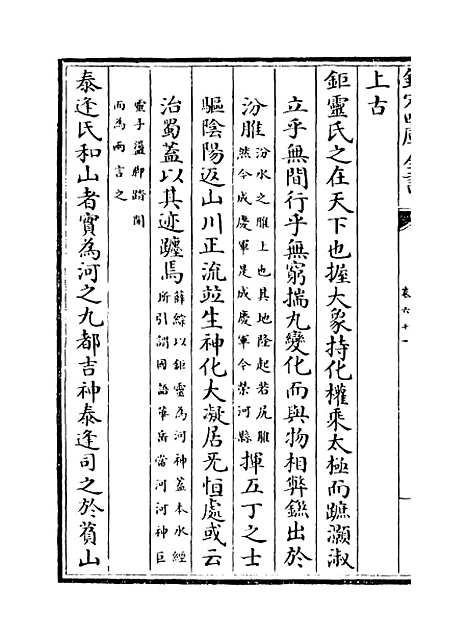 卷六十一
上古
鉅靈氏之在天下也握大象持化權乘太極而蹠灝淑
立乎無間行乎無窮揣丸變化而與物相弊鑑出於
汾脽汾水之脽上也其地隆起若尻脽然今成慶軍是成慶軍今榮河縣揮五丁之士
驅陰陽返山川正流竝生神化大凝居旡恒處或云
治蜀蓋以其迹躔焉薛綜以鉅靈為河神蓋本水經所引謂國語華岳當河河神巨
靈手盪脚踏開而為兩言之
泰逢氏和山者實為河之九都吉神泰逢司之於萯山